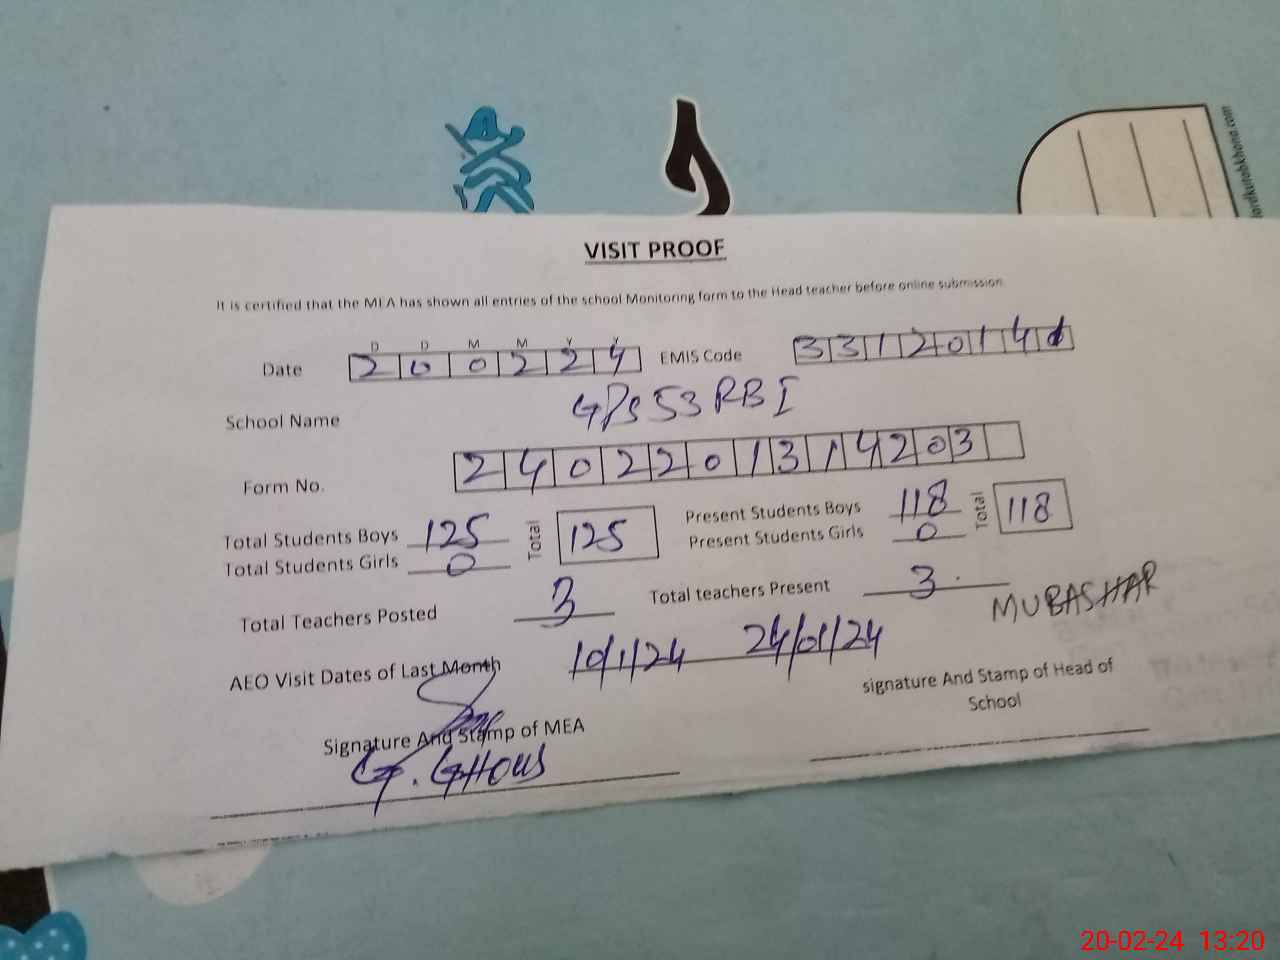 lordkutabkhana.com
VISIT PROOF
It is certified that the MEA has shown all entries of the school Monitoring form to the Head teacher before online submission.
D D M M Y Y
Date 200224 EMIS Code 33120141
School Name GPS 53 RB I
Form No. 2402201314203
Total Students Boys 125 Total 125 Present Students Boys 118 Total 118
Total Students Girls 0 Present Students Girls 0
Total Teachers Posted 3 Total teachers Present 3
MUBASHAR
AEO Visit Dates of Last Month 10/1/24 24/01/24
signature And Stamp of Head of
School
Signature And Stamp of MEA
G. GHOUS
20-02-24 13:20